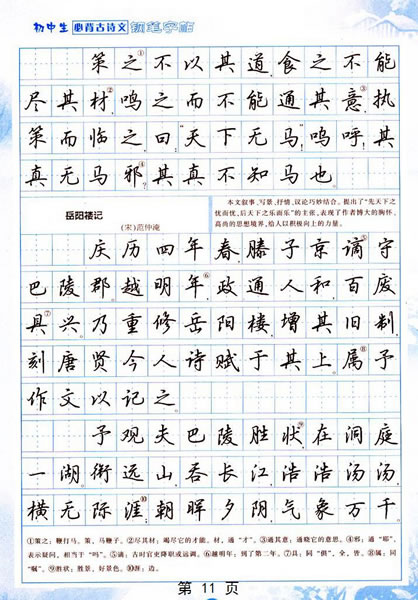 初中生 必背古诗文 钢笔字帖
策之①不以其道,食之不能
尽其材②,鸣之而不能通其意③,执
策而临之,曰:“天下无马!”呜呼!其
真无马邪④?其真不知马也。
岳阳楼记
(宋)范仲淹
本文叙事、写景、抒情、议论巧妙结合。提出了“先天下之
忧而忧,后天下之乐而乐”的主张,表现了作者博大的胸怀、
高尚的思想境界,给人以积极向上的力量。
庆历四年春,滕子京谪⑤守
巴陵郡。越明年⑥,政通人和,百废
具⑦兴,乃重修岳阳楼,增其旧制,
刻唐贤今人诗赋于其上,属⑧予
作文以记之。
予观夫巴陵胜状⑨,在洞庭
一湖。衔远山,吞长江,浩浩汤汤,
横无际涯⑩;朝晖夕阴,气象万千
①策之:鞭打马。策,马鞭子。②尽其材:竭尽它的才能。材,通“才”。③通其意:通晓它的意思。④邪:通“耶”,
表示疑问,相当于“吗”。⑤谪:古时官吏降职或远调。⑥越明年:到了第二年。⑦具:同“俱”,全,皆。⑧属:同
“嘱”。⑨胜状:胜景,好景色。⑩涯:边。
第 11 页